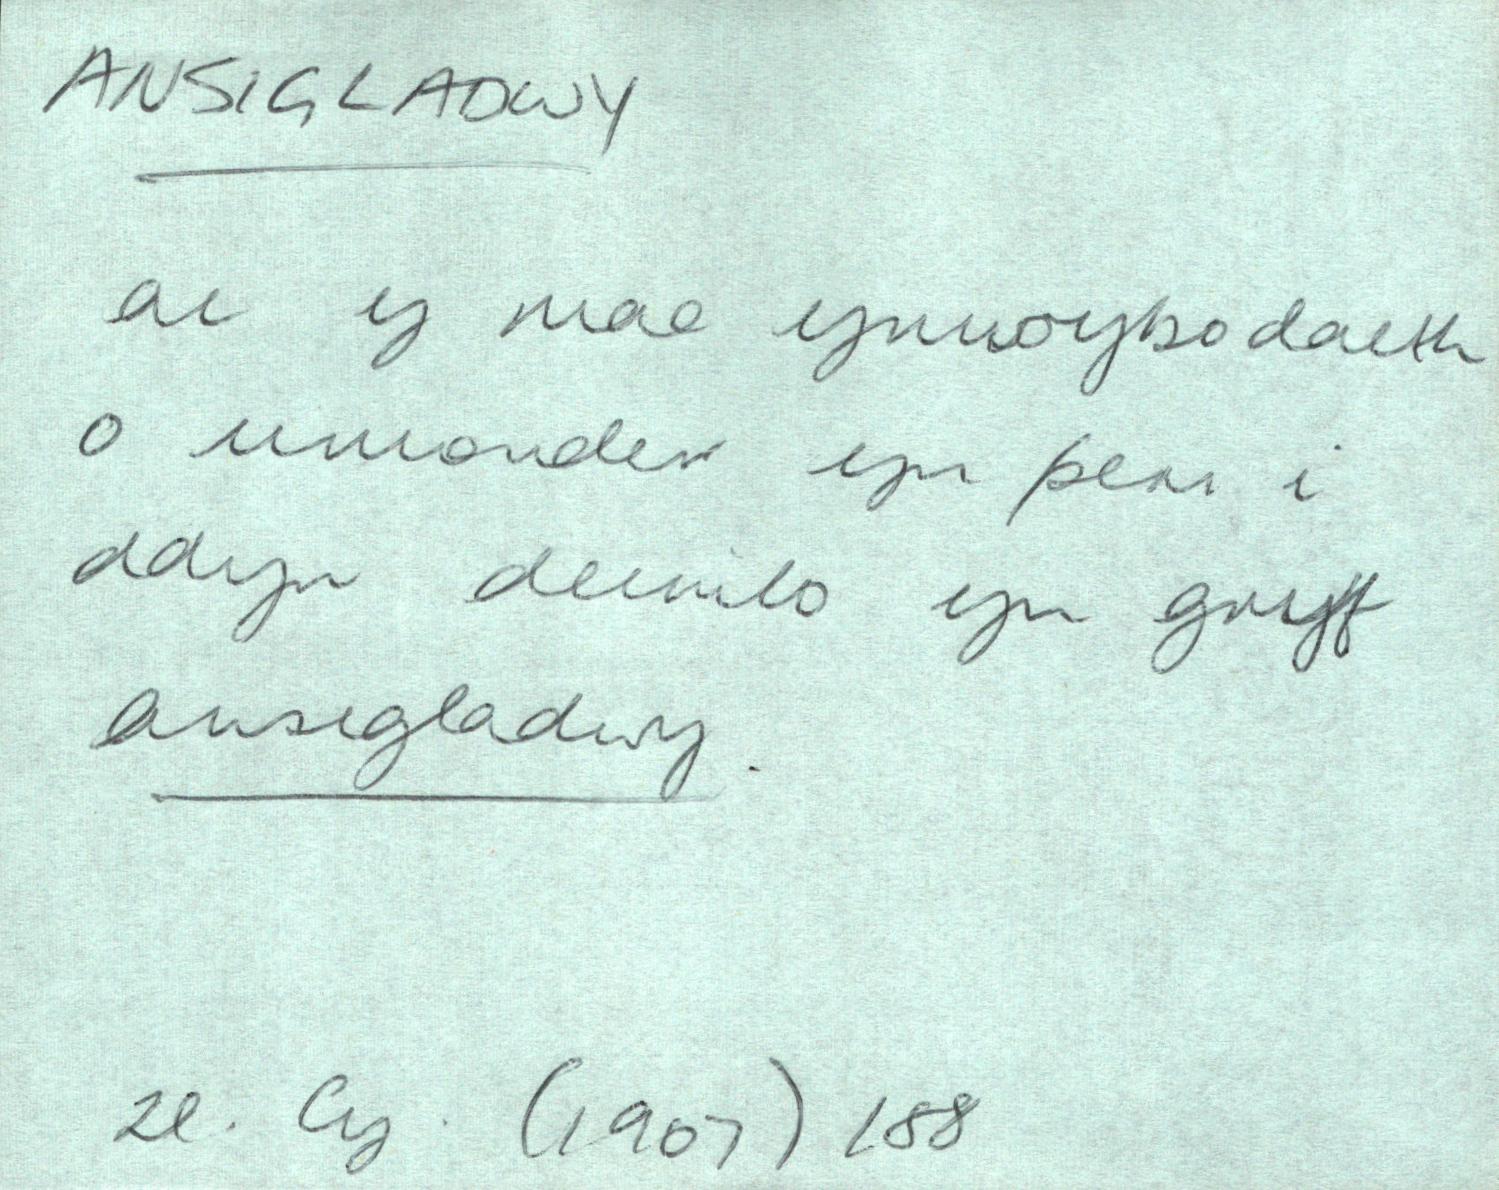 ANSIGLADWY
ac y mae ymwybodaeth
o uniondeb yn peri i
ddyn deimlo yn gryf
ansigladwy.
Ze. Cy. (1907) 188